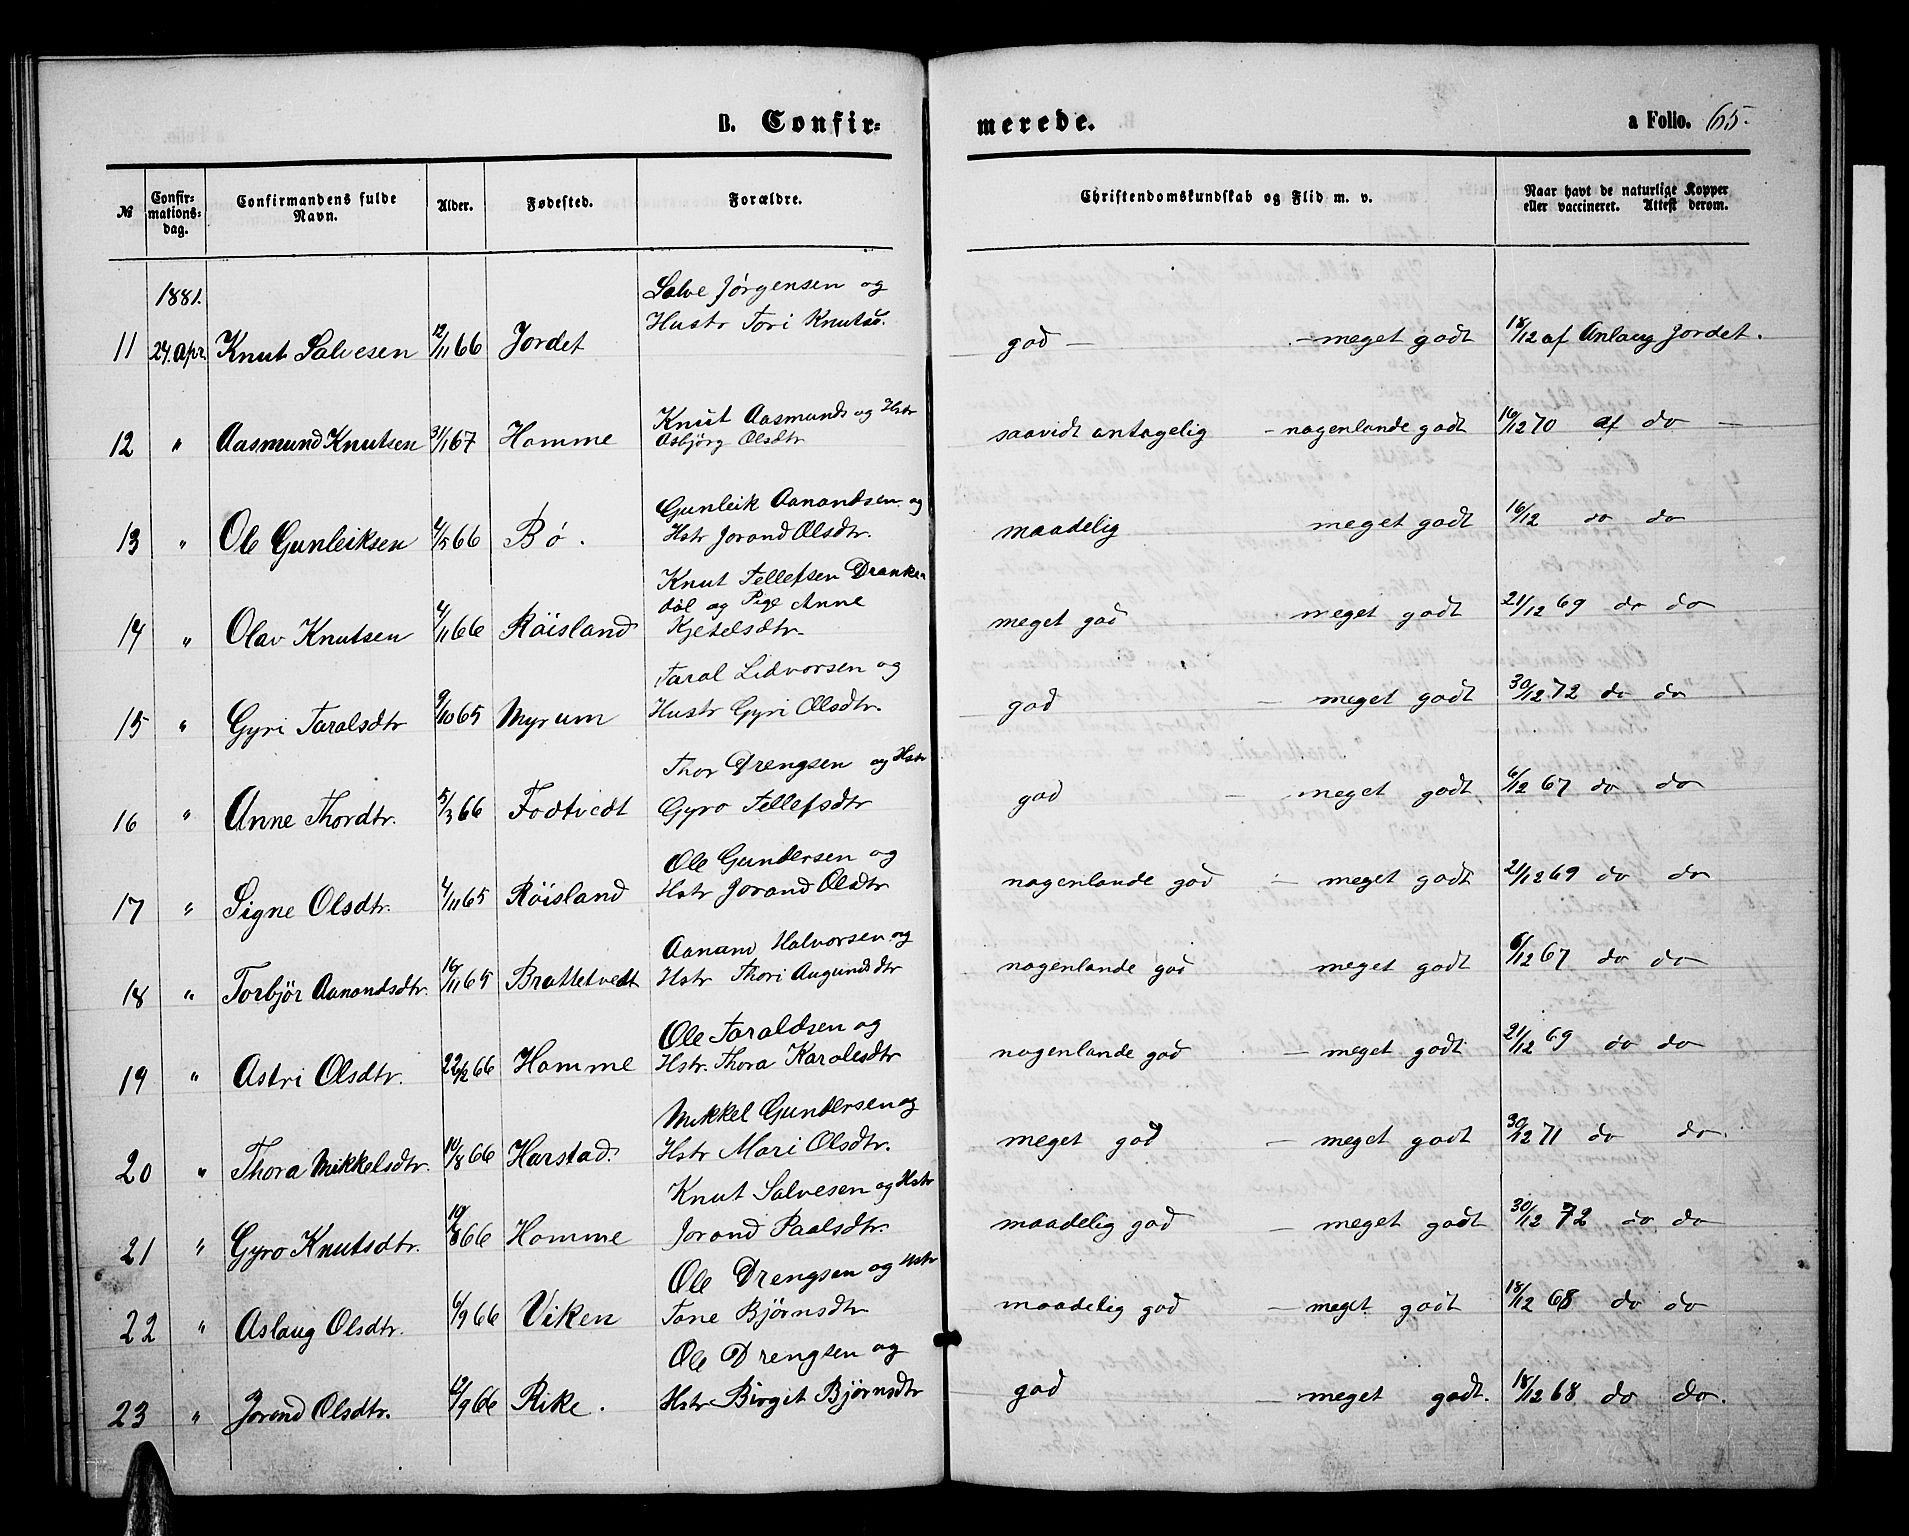 B. Confir= merede. a Folio. 65.
№ Confir-mations-dag. Confirmandens fulde Navn. Alder. Fødested. Forældre. Christendomskundskab og Flid m. v. Naar havt de naturlige Kopper eller vaccineret. Attest derom.
1881.
Salve Jørgensen og
11 24. Apr. Knut Salvesen 12/11 66 Jordet Hustr Tori Knutsd. god — — meget godt 18/12 af Anlaug Jordet.
Knut Aasmunds og Hstr
12 " Aasmund Knutsen 31/1 67 Homme Asbjörg Olsdtr saavidt antagelig - nogenlunde godt 16/12 70 af do —
Gunleik Aanandsen og
13 " Ole Gunleiksen 4/5 66 Bø. Hstr Jorand Olsdtr. maadelig meget godt 16/12 do do
Knut Tellefsen Dranke-
dal og Pige Anne
14 " Olav Knutsen 4/11 66 Röisland Kjetelsdtr. meget god — meget godt 21/12 69 do do
Taral Lidvorsen og
15 " Gyri Taralsdtr 9/10 65 Myrum Hustr Gyri Olsdtr. god — meget godt 30/12 72 do do
Thor Drengsen og Hstr
16 " Anne Thordtr. 5/3 66 Fodtvedt Gyro Tellefsdtr god — meget godt 6/12 67 do do
Ole Gundersen og
17 " Signe Olsdtr. 4/11 65 Röisland Hstr Jorand Olsdtr nogenlunde god — meget godt 21/12 69 do do
Aanand Halvorsen og
18 " Torbjör Aanandsdtr. 16/11 65 Brottetvedt Hstr Thori Augundsdtr nogenlunde god meget godt 6/12 67 do do
Ole Taraldsen og
19 " Astri Olsdtr. 22/2 66 Homme Hstr. Thora Karolesdtr nogenlunde god — meget godt 21/12 69 do do
Mikkel Gundersen og
20 " Thora Mikkelsdtr. 14/8 66 Harstad. Hstr Mari Olsdtr. meget god — meget godt 30/12 71 do do
Knut Salvesen og Hstr
21 " Gyro Knutsdtr. 19/8 66 Homme Jorand Paalsdtr. maadelig god — meget godt 30/12 72 do do
Ole Drengsen og Hstr
22 " Aslaug Olsdtr. 6/9 66 Viken Tone Björnsdtr maadelig god — meget godt 18/12 68 do do
Ole Drengsen og
23 " Jorand Olsdtr. 12/9 66 Rike. Hstr Birgit Björnsdtr god — meget godt. 18/12 68 do do.